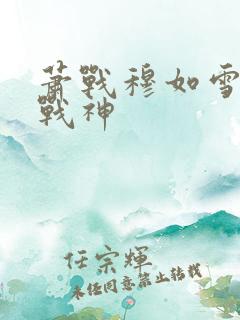 蕭戰穆如雪
戰神
任宗輝
未經同意禁止轉載